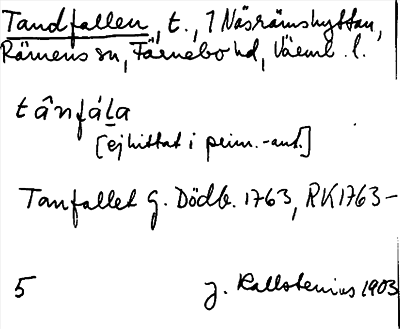 Tandfallen, t., 7 Näsrämshyttan,
Rämens sn, Färnebo hd, Värml. l.
tânfáḷa
[ej hittat i prim.-ant.]
Tanfallet G. Dödb. 1763, RK 1763-
5 G. Kallstenius 1903